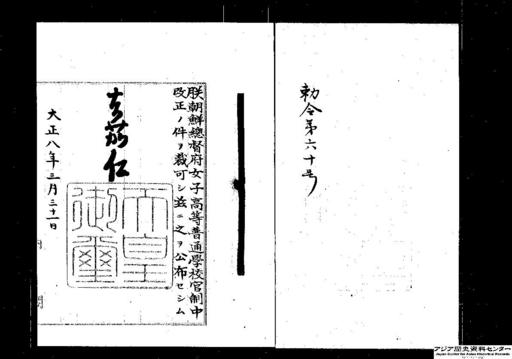 勅令第六十号
朕朝鮮總督府女子高等普通學校官制中
改正ノ件ヲ裁可シ茲ニ之ヲ公布セシム
嘉仁
天皇
御璽
大正八年三月三十一日
アジア歴史資料センター
Japan Center for Asian Historical Records